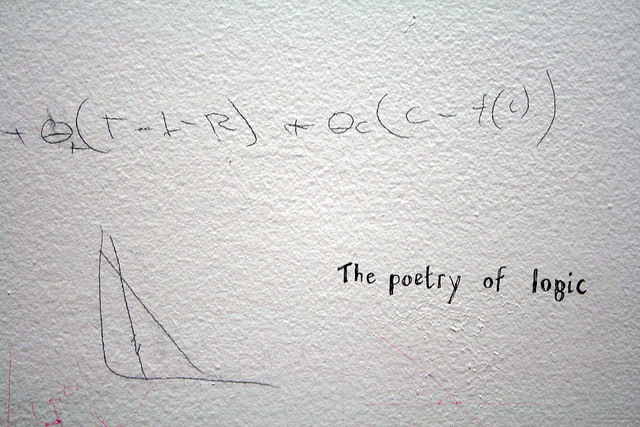 + Θ_r(T - t - R) + Θc(c - f(c))
The poetry of logic